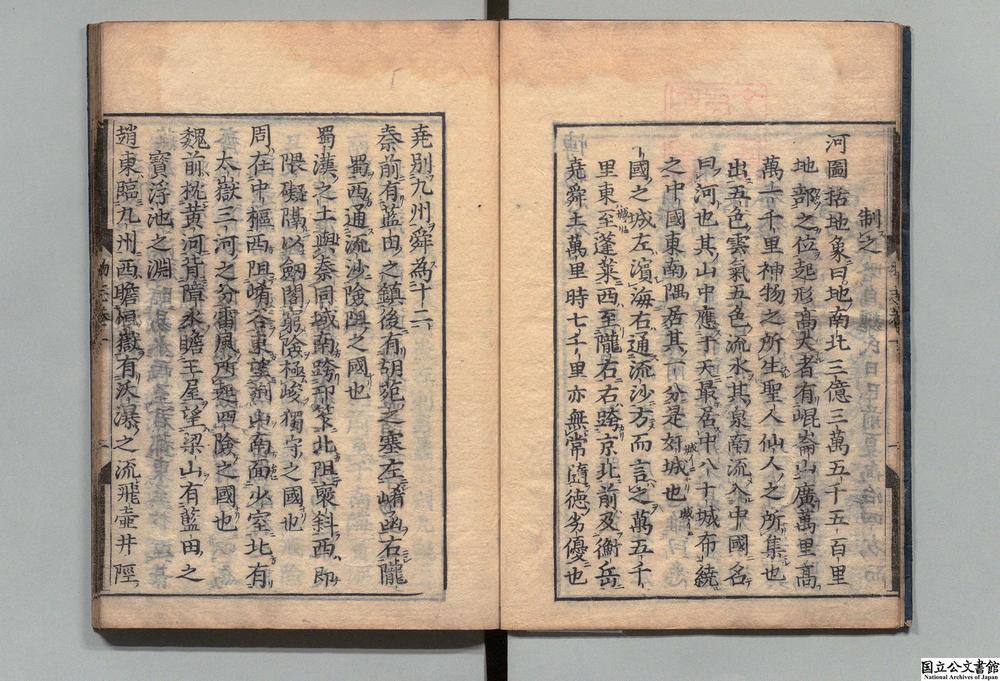 制之
河圖括地象曰地南北三億三萬五千五百里
地部之位起形高大者有崐崙山廣萬里高
萬一千里神物之所生聖人仙人之所集也
出五色雲氣五色流水其泉南流入中國名
曰河也其山中應于天最居中八十城布繞
之中國東南隅居其一分是奸城也
國之城左濱海右通流沙方而言之萬五千
里東至蓬萊西至隴右右跨京北前及衡岳
堯舜土萬里時七千里亦無常隨德劣優也
堯別九州舜為十二
秦前有藍田之鎮後有胡苑之塞左崤函右隴
蜀西通流沙險阻之國也
蜀漢之土與秦同域南跨邛笮北阻褒斜西即
隈礙隔以劒閣窮險極峻獨守之國也
周在中樞西阻崤谷東望荆山南面少室北有
太嶽三河之分雷風所起四險之國也
魏前枕黃河背障水瞻王屋望梁山有藍田之
寶浮池之淵
趙東臨九州西瞻恒嶽有沃瀑之流飛壺井陘
国立公文書館
National Archives of Japan